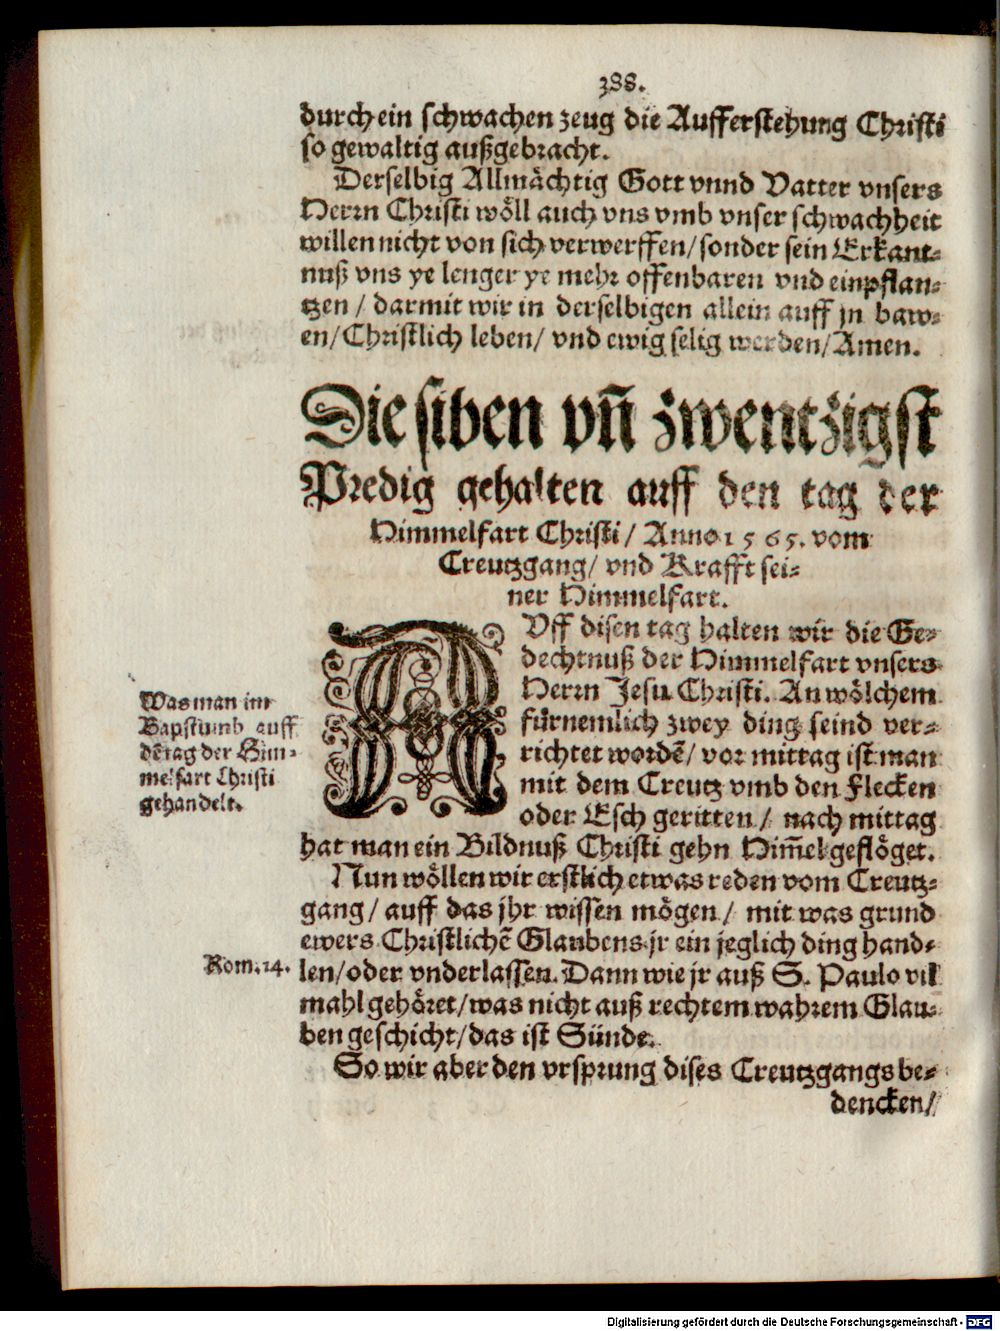 388.
durch ein schwachen zeug die Aufferstehung Christi
so gewaltig außgebracht.
Derselbig Allmächtig Gott vnnd Vatter vnsers
Herrn Christi wöll auch vns vmb vnser schwachheit
willen nicht von sich verwerffen/ sonder sein Erkant-
nuß vns ye lenger ye mehr offenbaren vnd einpflan-
tzen / darmit wir in derselbigen allein auff jn baw-
en/ Christlich leben/ vnd ewig selig werden/ Amen.
Die siben vñ zwentzigst
Predig gehalten auff den tag der
Himmelfart Christi/ Anno 1565. vom
Creutzgang/ vnd Krafft sei-
ner Himmelfart.
AVff disen tag halten wir die Ge-
dechtnuß der Himmelfart vnsers
Herrn Jesu Christi. An wölchem
fürnemlich zwey ding seind ver-
richtet wordẽ/ vor mittag ist man
mit dem Creutz vmb den Flecken
oder Esch geritten / nach mittag
hat man ein Bildnuß Christi gehn Him̃el geflöget.
Was man im
Bapstumb auff
dẽ tag der Him-
melfart Christi
gehandelt.
Nun wöllen wir erstlich etwas reden vom Creutz-
gang/ auff das jhr wissen mögen/ mit was grund
ewers Christlichẽ Glaubens jr ein jeglich ding hand-
len/ oder vnderlassen. Dann wie jr auß S. Paulo vil
mahl gehöret/ was nicht auß rechtem wahrem Glau-
ben geschicht/ das ist Sünde.
Rom. 14.
So wir aber den vrsprung dises Creutzgangs be-
dencken/
Digitalisierung gefördert durch die Deutsche Forschungsgemeinschaft - DFG